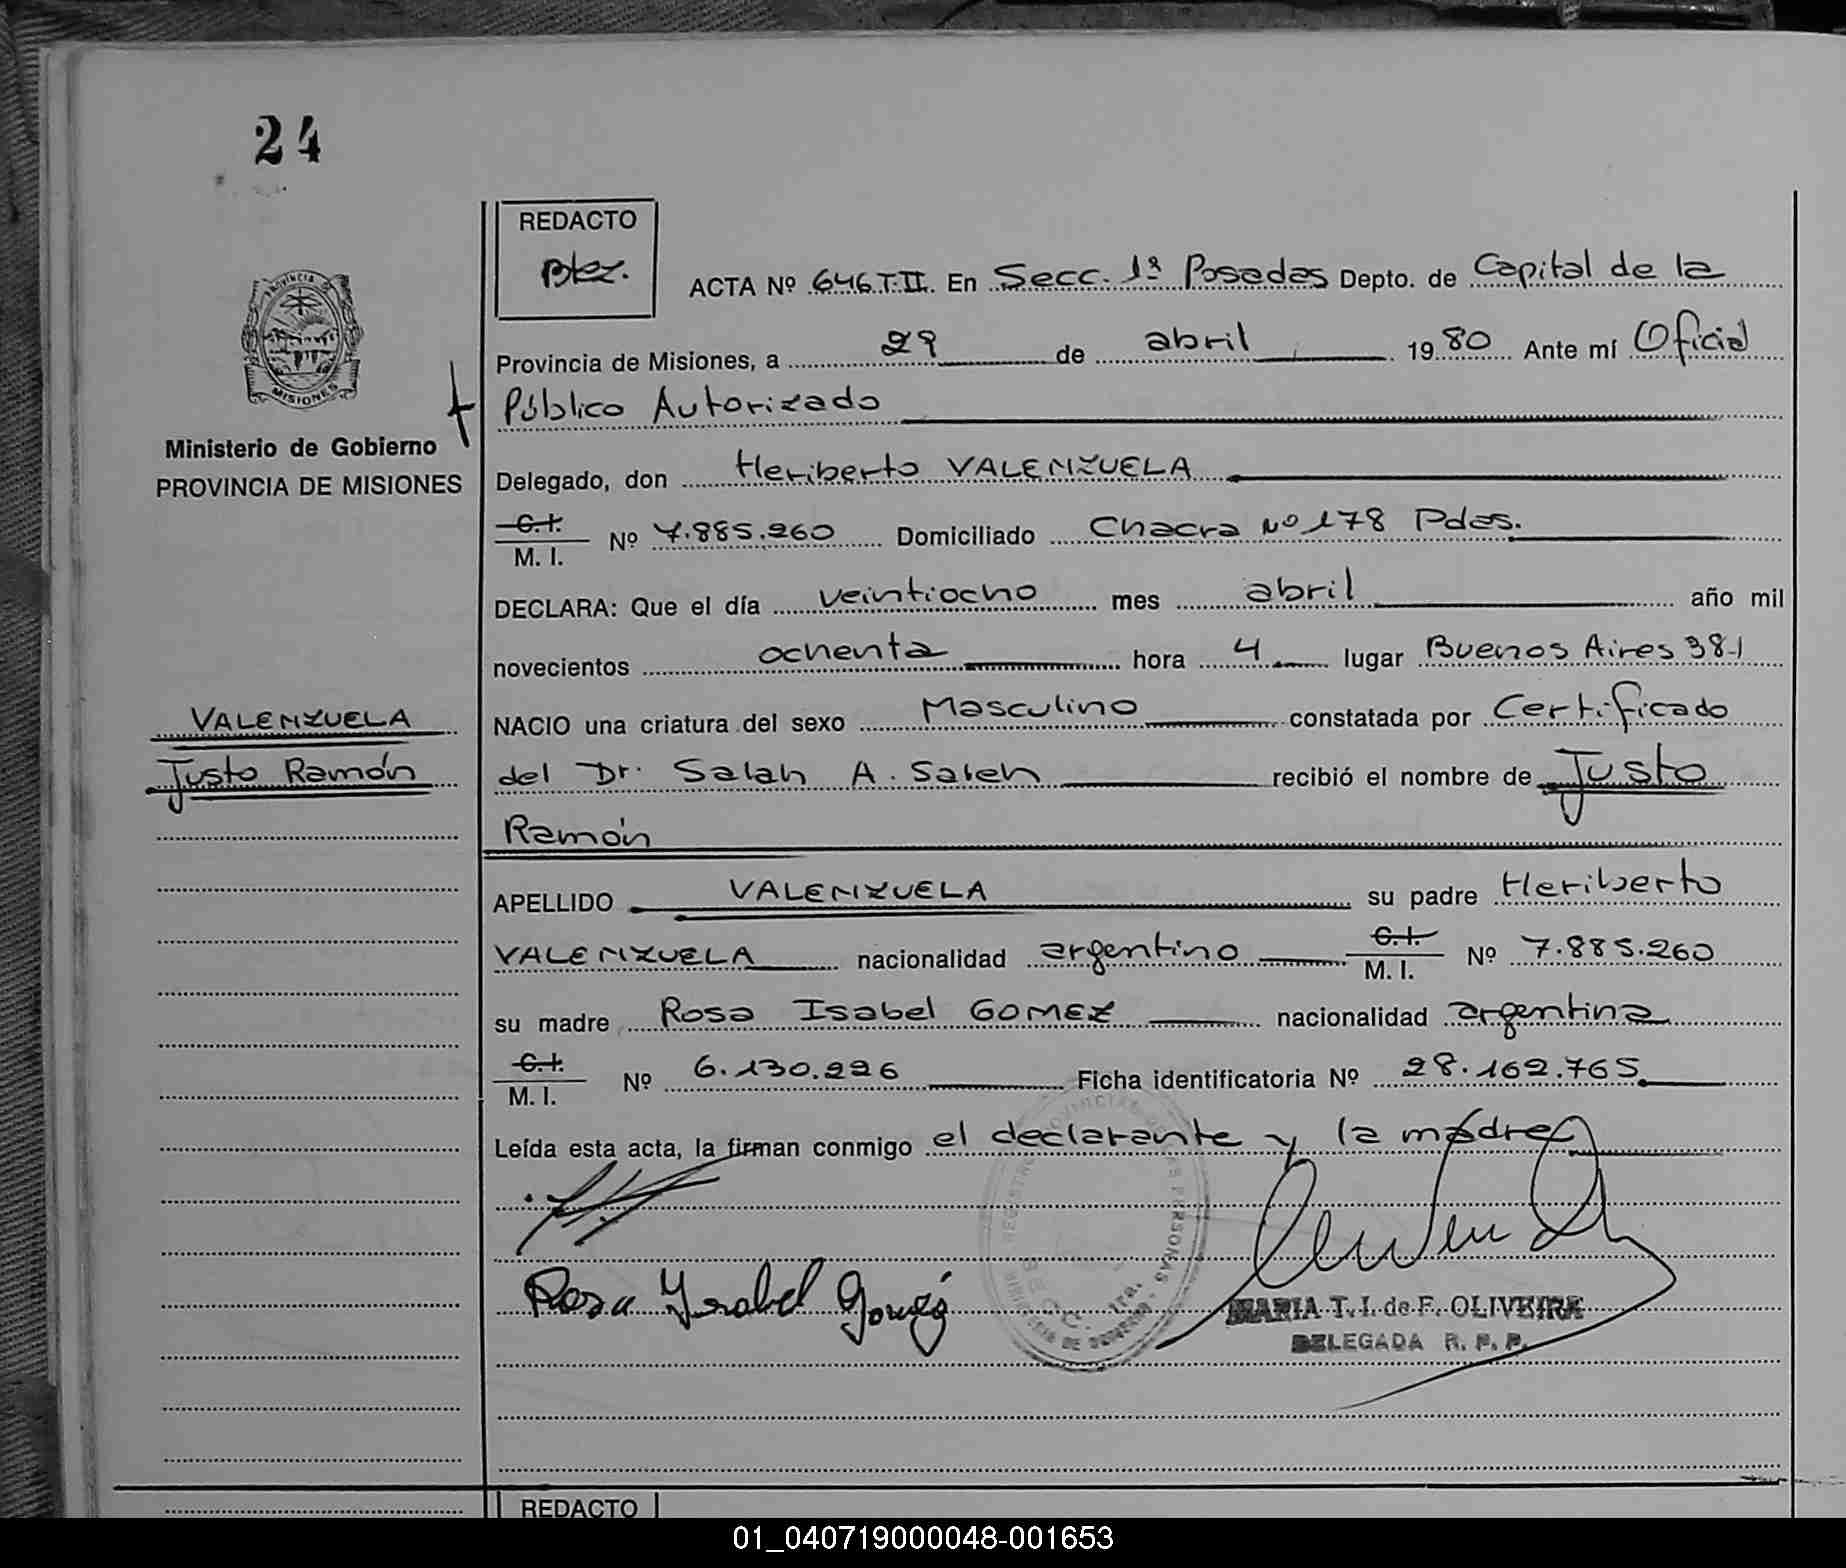 24
REDACTO
Btez.
ACTA Nº 646 T.II. En Secc. 1ª Posadas Depto. de Capital de la
Provincia de Misiones, a 29 de abril 1980 Ante mí Oficial
Público Autorizado
PROVINCIA MISIONES
Ministerio de Gobierno
PROVINCIA DE MISIONES
Delegado, don Heriberto VALENZUELA
C.I. M. I. Nº 7.885.260 Domiciliado Chacra Nº 178 Pdas.
DECLARA: Que el día veintiocho mes abril año mil
novecientos ochenta hora 4 lugar Buenos Aires 381
VALENZUELA
Justo Ramón
NACIO una criatura del sexo Masculino constatada por Certificado
del Dr. Salah A. Saleh recibió el nombre de Justo
Ramón
APELLIDO VALENZUELA su padre Heriberto
VALENZUELA nacionalidad argentino C.I. M. I. Nº 7.885.260
su madre Rosa Isabel GOMEZ nacionalidad argentina
C.I. M. I. Nº 6.130.226 Ficha identificatoria Nº 28.162.765
Leída esta acta, la firman conmigo el declarante y la madre
Rosa Ysabel Gomez
MARIA T. I. de F. OLIVEIRA
DELEGADA R. P. P.
REDACTO
01_040719000048-001653